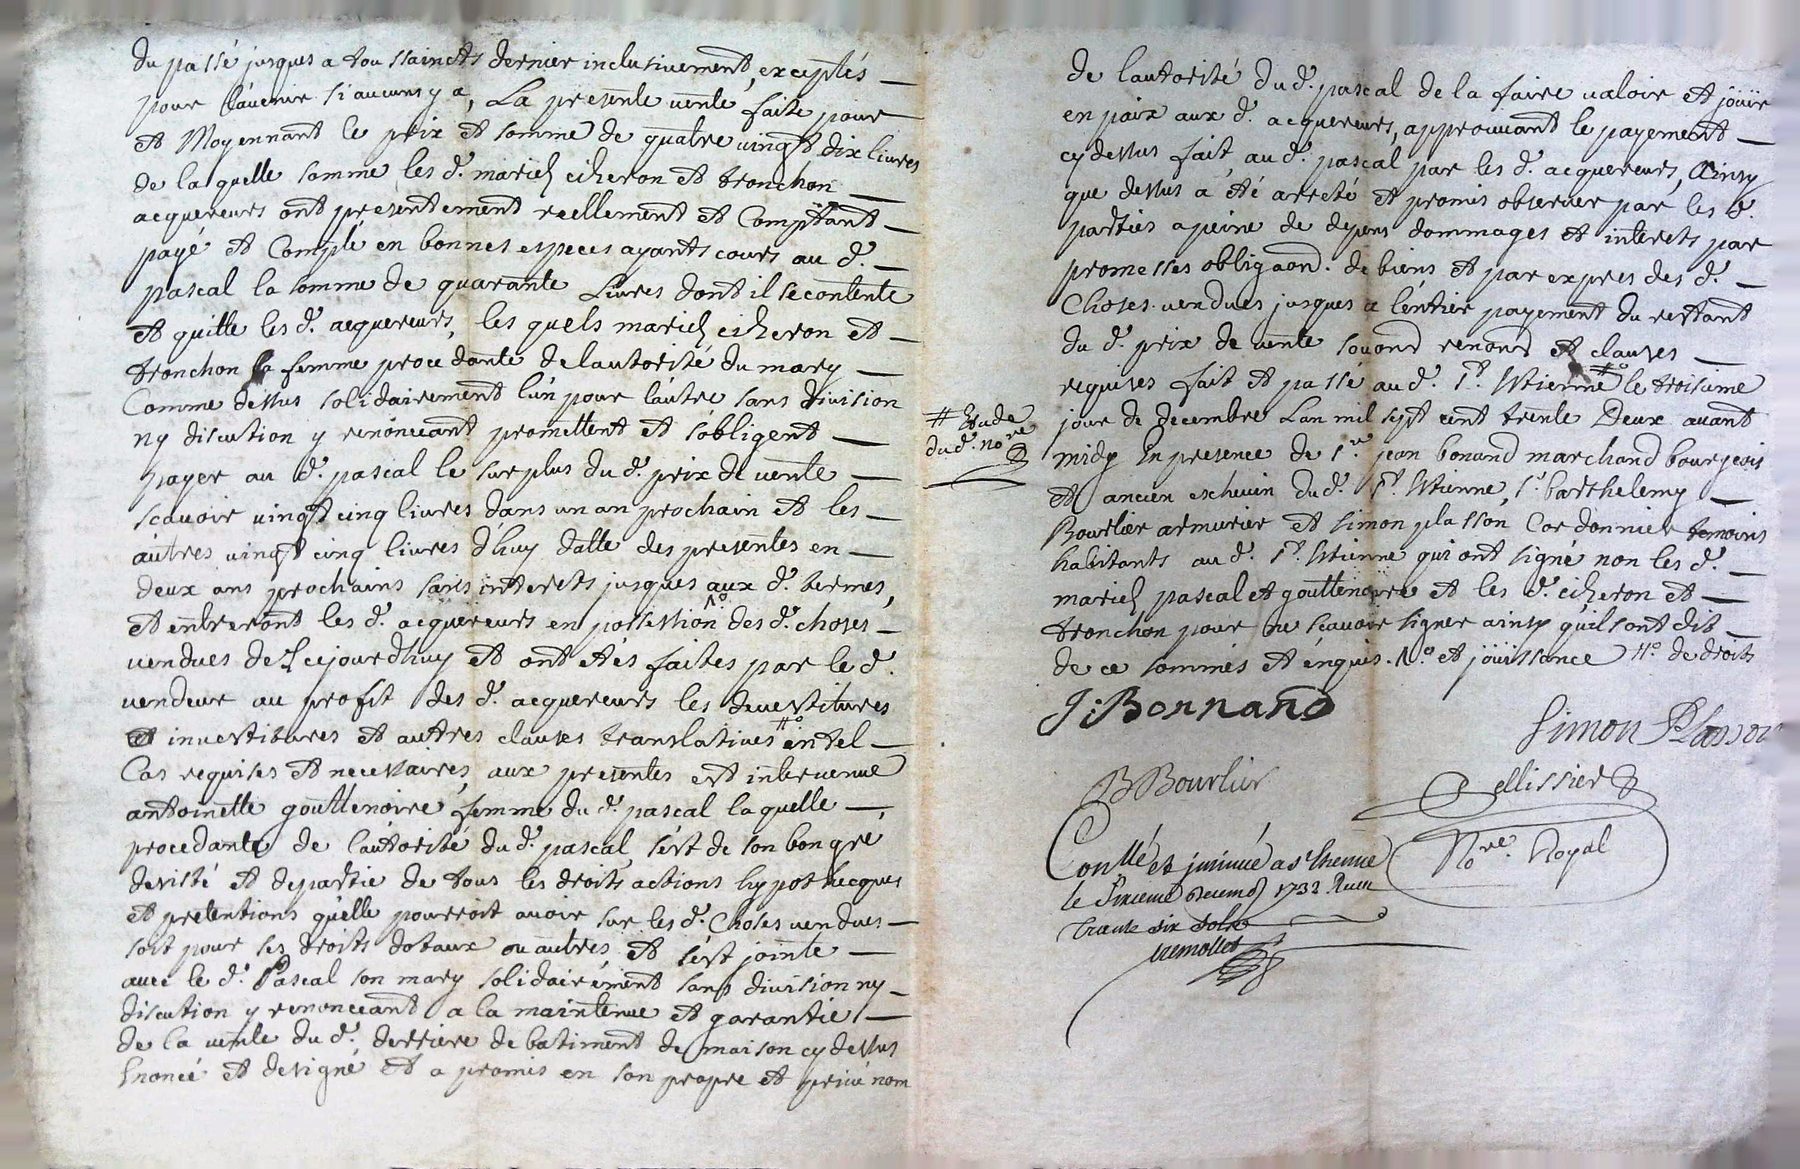 du passé jusques a toussaincts dernier inclusivement, exceptés
pour l'avenir si aucuns y a, La presente vente faite pour
et Moyennant le prix et somme de quatre vingt dix livres
de laquelle somme les d. mariés cizeron et tronchon
acquereurs ont presentement reellement et Comptant
payé et Compté en bonnes especes ayants cours au d.
pascal la somme de quarante Livres dont il se contente
et quitte les d. acquereurs, les quels mariés cizeron et
tronchon la femme procedante de lautorité du mary
Comme dessus solidairement l'un pour l'autre sans division
ny discution y renonceant promettent et s'obligent
payer au d. pascal le surplus du d. prix de vente
scavoir vingt cinq livres dans un an prochain et les
autres vingt cinq livres d'huy datte des presentes en
deux ans prochains sans interets jusques aux d. termes,
et entreront les d. acquereurs en possession N.o des d. choses
vendues de cejourdhuy et ont etés faites par le d.
vendeur au profit des d. acquereurs les devestitures
et investitures et autres clauses translatives #o en tel
Cas requises et necessaires, aux presentes est intervenue
antoinette gouttenoire femme du d. pascal laquelle
procedante de l'autorité du d. pascal, s'est de son bon gré
desisté et departie de tous les droits actions hypotheques
et pretentions qu'elle pourroit avoir sur les d. Choses vendues
soit pour ses droits dotaux ou autres, et s'est jointe
avec le d. Pascal son mary solidairement sans division ny
discution y renonceant a la maintenue et garantie
de la vente du d. derriere de batiment de maison cy dessus
Enoncé et designé et a promis en son propre et privé nom
de lautorité du d. pascal de la faire valoir et joüir
en paix aux d. acquereurs, approuvant le payement
cy dessus fait au d. pascal par les d. acquereurs, Ainsy
que dessus a été arreté et promis observer par les d.
parties a peine de depens dommages et interets par
promesses obligaond. de biens et par expres des d.
Choses vendues jusques a l'entier payement du restant
du d. prix de vente soumond renond et clauses
requises fait et passé au d. St. Etienne #o le troisieme
# Etude
du d. no.re
jour de decembre Lan mil sept cent trente Deux avant
midy En presence de Sr. jean bonand marchand bourgeois
et ancien eschevin du d. St. Etienne, Sr. barthelemy
Bourlier armurier et simon plasson Cordonnier temoins
habitants au d. St. Etienne qui ont signé non les d.
mariés pascal et gouttenoire et les d. cizeron et
tronchon pour ne scavoir signer ainsy qu'ils ont dit
de ce sommés et enquis. N.o et joüissance #o de droits
J: Bonnand
Simon Plasson
B Bourlier
Pellissier
No.re Royal
Con.llé et insinué a St Etienne
le Sixieme decemb 1732 Receu
trente six sols